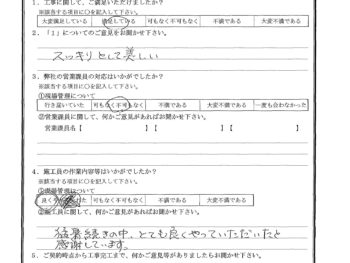 1．工事に関して、ご満足いただけましたか？
※該当する項目に○を記入して下さい。
大変満足している 満足している 可もなく不可もなく 不満である 大変不満である
2．「1」についてのご意見をお聞かせ下さい。
スッキリとして美しい
3．弊社の営業課員の対応はいかがでしたか？
※該当する項目に○を記入して下さい。
①現場管理について
行き届いていた 可もなく不可もなく 不満である 大変不満である 一度も会わなかった
②営業課員に関して、何かご意見があればお聞かせ下さい。
営業課員名【 】【 】【 】
4．施工員の作業内容等はいかがでしたか？
※該当する項目に○を記入して下さい。
①現場管理について
可もなく不可もなく 不満である 大変不満である
②施工員に関して、何かご意見があればお聞かせ下さい。
猛暑続きの中、とても良くやっていただいたと
感謝しています。
5．ご契約時点から工事完工まで、何かご意見等がありましたらお聞かせ下さい。